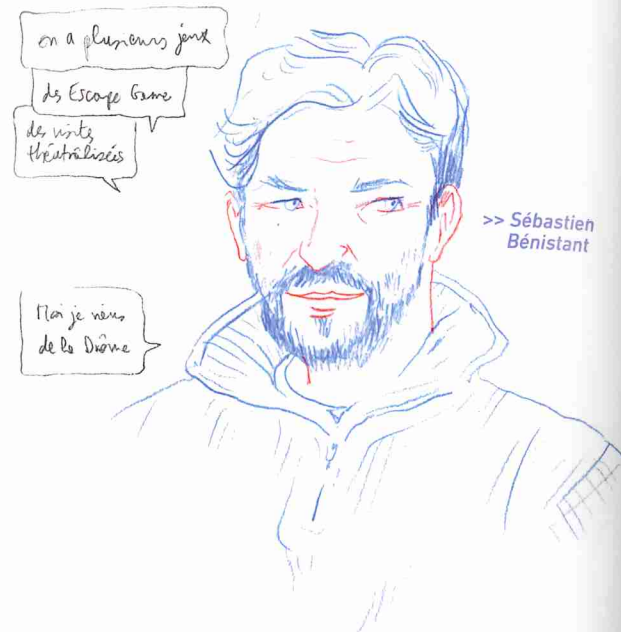 on a plusieurs jeux
des Escape Game
des visites
théatralisées
>> Sébastien
Bénistant
Moi je viens
de la Drôme